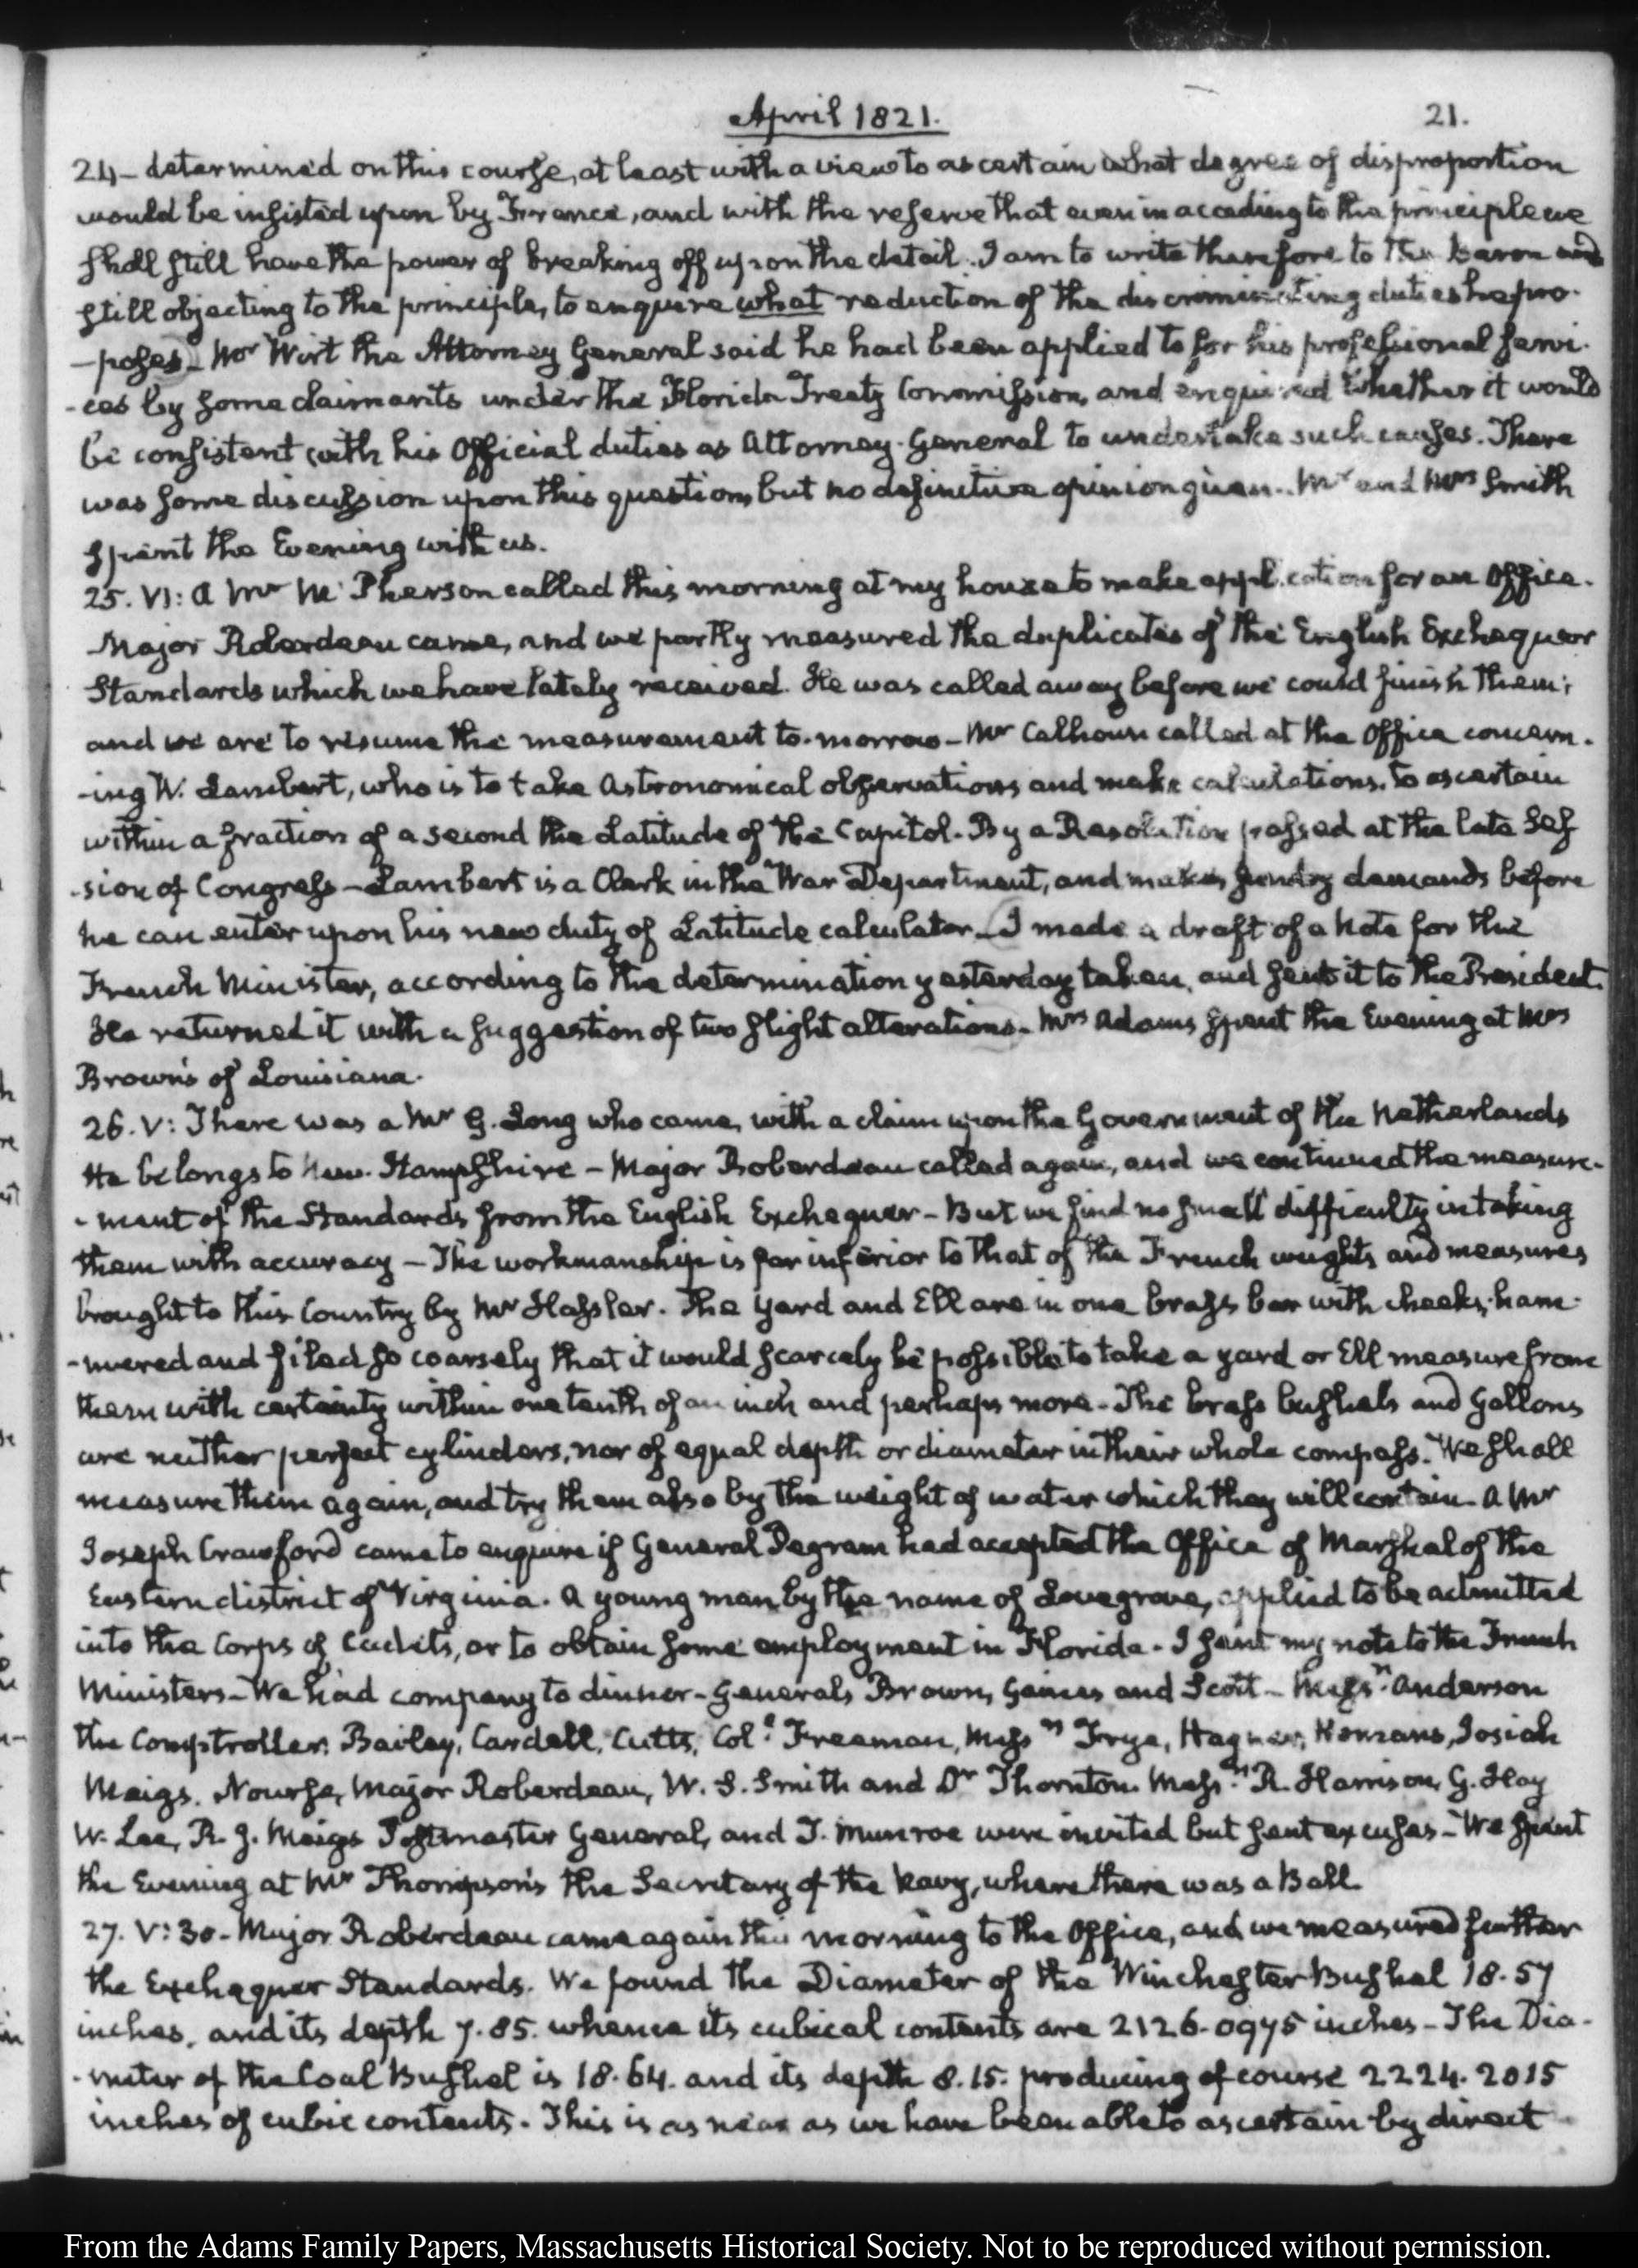 April 1821.
21.
24– determined on this course, at least with a view to ascertain what degree of disproportion
would be insisted upon by France, and with the reserve that even in acceding to the principle we
shall still have the power of breaking off upon the detail. I am to write therefore to the Baron and
still objecting to the principle, to enquire what reduction of the discriminating duties he pro-
-poses– Mr Wirt the Attorney General said he had been applied to for his professional servi-
-ces by some claimants under the Florida Treaty Commission, and enquired whether it would
be consistent with his Official duties as Attorney-General to undertake such causes. There
was some discussion upon this question, but no definitive opinion given. Mr and Mrs Smith
spent the Evening with us.
25. VI: A Mr McPherson called this morning at my house to make application for an Office.
Major Roberdeau came, and we partly measured the duplicates of the English Exchequer
Standards which we have lately received. He was called away before we could finish them;
and we are to resume the measurement to-morrow– Mr Calhoun called at the Office concern-
-ing W. Lambert, who is to take Astronomical observations and make calculations, to ascertain
within a fraction of a second the Latitude of the Capitol. By a Resolution passed at the late Ses
-sion of Congress– Lambert is a Clerk in the War Department, and makes sundry demands before
he can enter upon his new duty of Latitude calculator– I made a draft of a Note for the
French Minister, according to the determination yesterday taken, and sent it to the President.
He returned it with a suggestion of two slight alterations– Mrs Adams spent the Evening at Mrs
Brown's of Louisiana.
26. V: There was a Mr G. Long who came, with a claim upon the Government of the Netherlands
He belongs to New-Hampshire– Major Roberdeau called again, and we continued the measure-
-ment of the Standards from the English Exchequer– But we find no small difficulty in taking
them with accuracy– The workmanship is far inferior to that of the French weights and measures
brought to this Country by Mr Hassler. The yard and Ell are in one brass bar with cheeks, ham-
-mered and filed so coarsely that it would scarcely be possible to take a yard or Ell measure from
them with certainty within one tenth of an inch and perhaps more– The brass bushels and Gallons
are neither perfect cylinders, nor of equal depth or diameter in their whole compass. We shall
measure them again, and try them also by the weight of water which they will contain– A Mr
Joseph Crawford came to enquire if General Pegram had accepted the Office of Marshal of the
Eastern district of Virginia. A young man by the name of Lovegrove, applied to be admitted
into the Corps of Cadets, or to obtain some employment in Florida– I sent my note to the French
Minister– We had company to dinner– Generals Brown, Gaines and Scott– Messrs. Anderson
the Comptroller, Bailey, Cardell, Cutts, Coll. Freeman, Messrs Frye, Hagner, Homans, Josiah
Meigs, Nourse, Major Roberdeau, W. S. Smith and Dr Thornton. Messrs. R. Harrison, G. Hay
W. Lee, R. J. Meigs Postmaster General, and T. Munroe were invited but sent excuses– We spent
the Evening at Mr Thompson's the Secretary of the Navy, where there was a Ball.
27. V:30– Major Roberdeau came again this morning to the Office, and we measured further
the Exchequer Standards. We found the Diameter of the Winchester Bushel 18.57
inches, and its depth 7.85. whence its cubical contents are 2126.0975 inches– The Dia-
-meter of the Coal Bushel is 18.64. and its depth 8.15. producing of course 2224.2015
inches of cubic contents– This is as near as we have been able to ascertain by direct
From the Adams Family Papers, Massachusetts Historical Society. Not to be reproduced without permission.